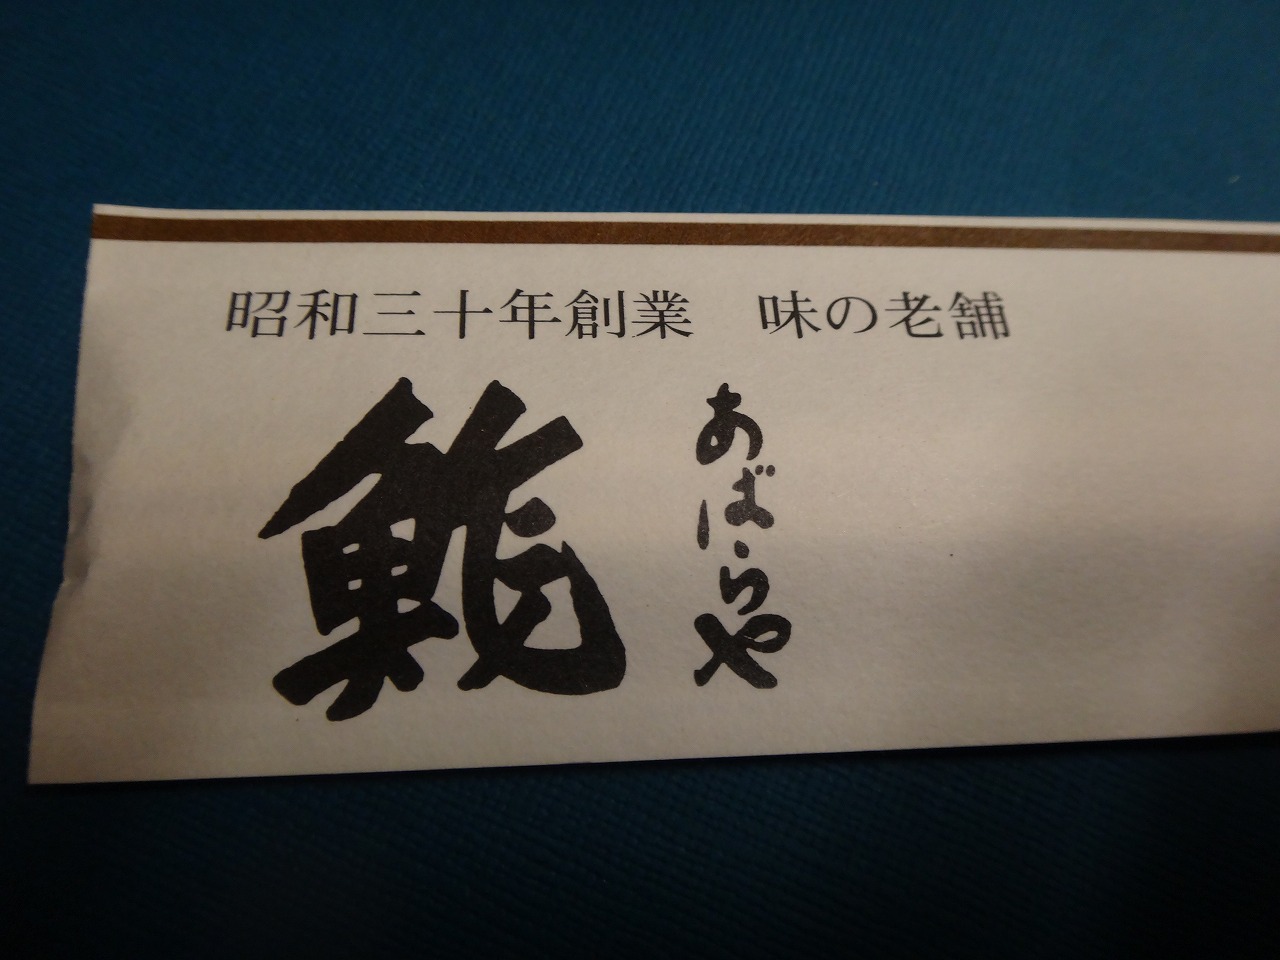 昭和三十年創業　味の老舗
鮨
あばらや